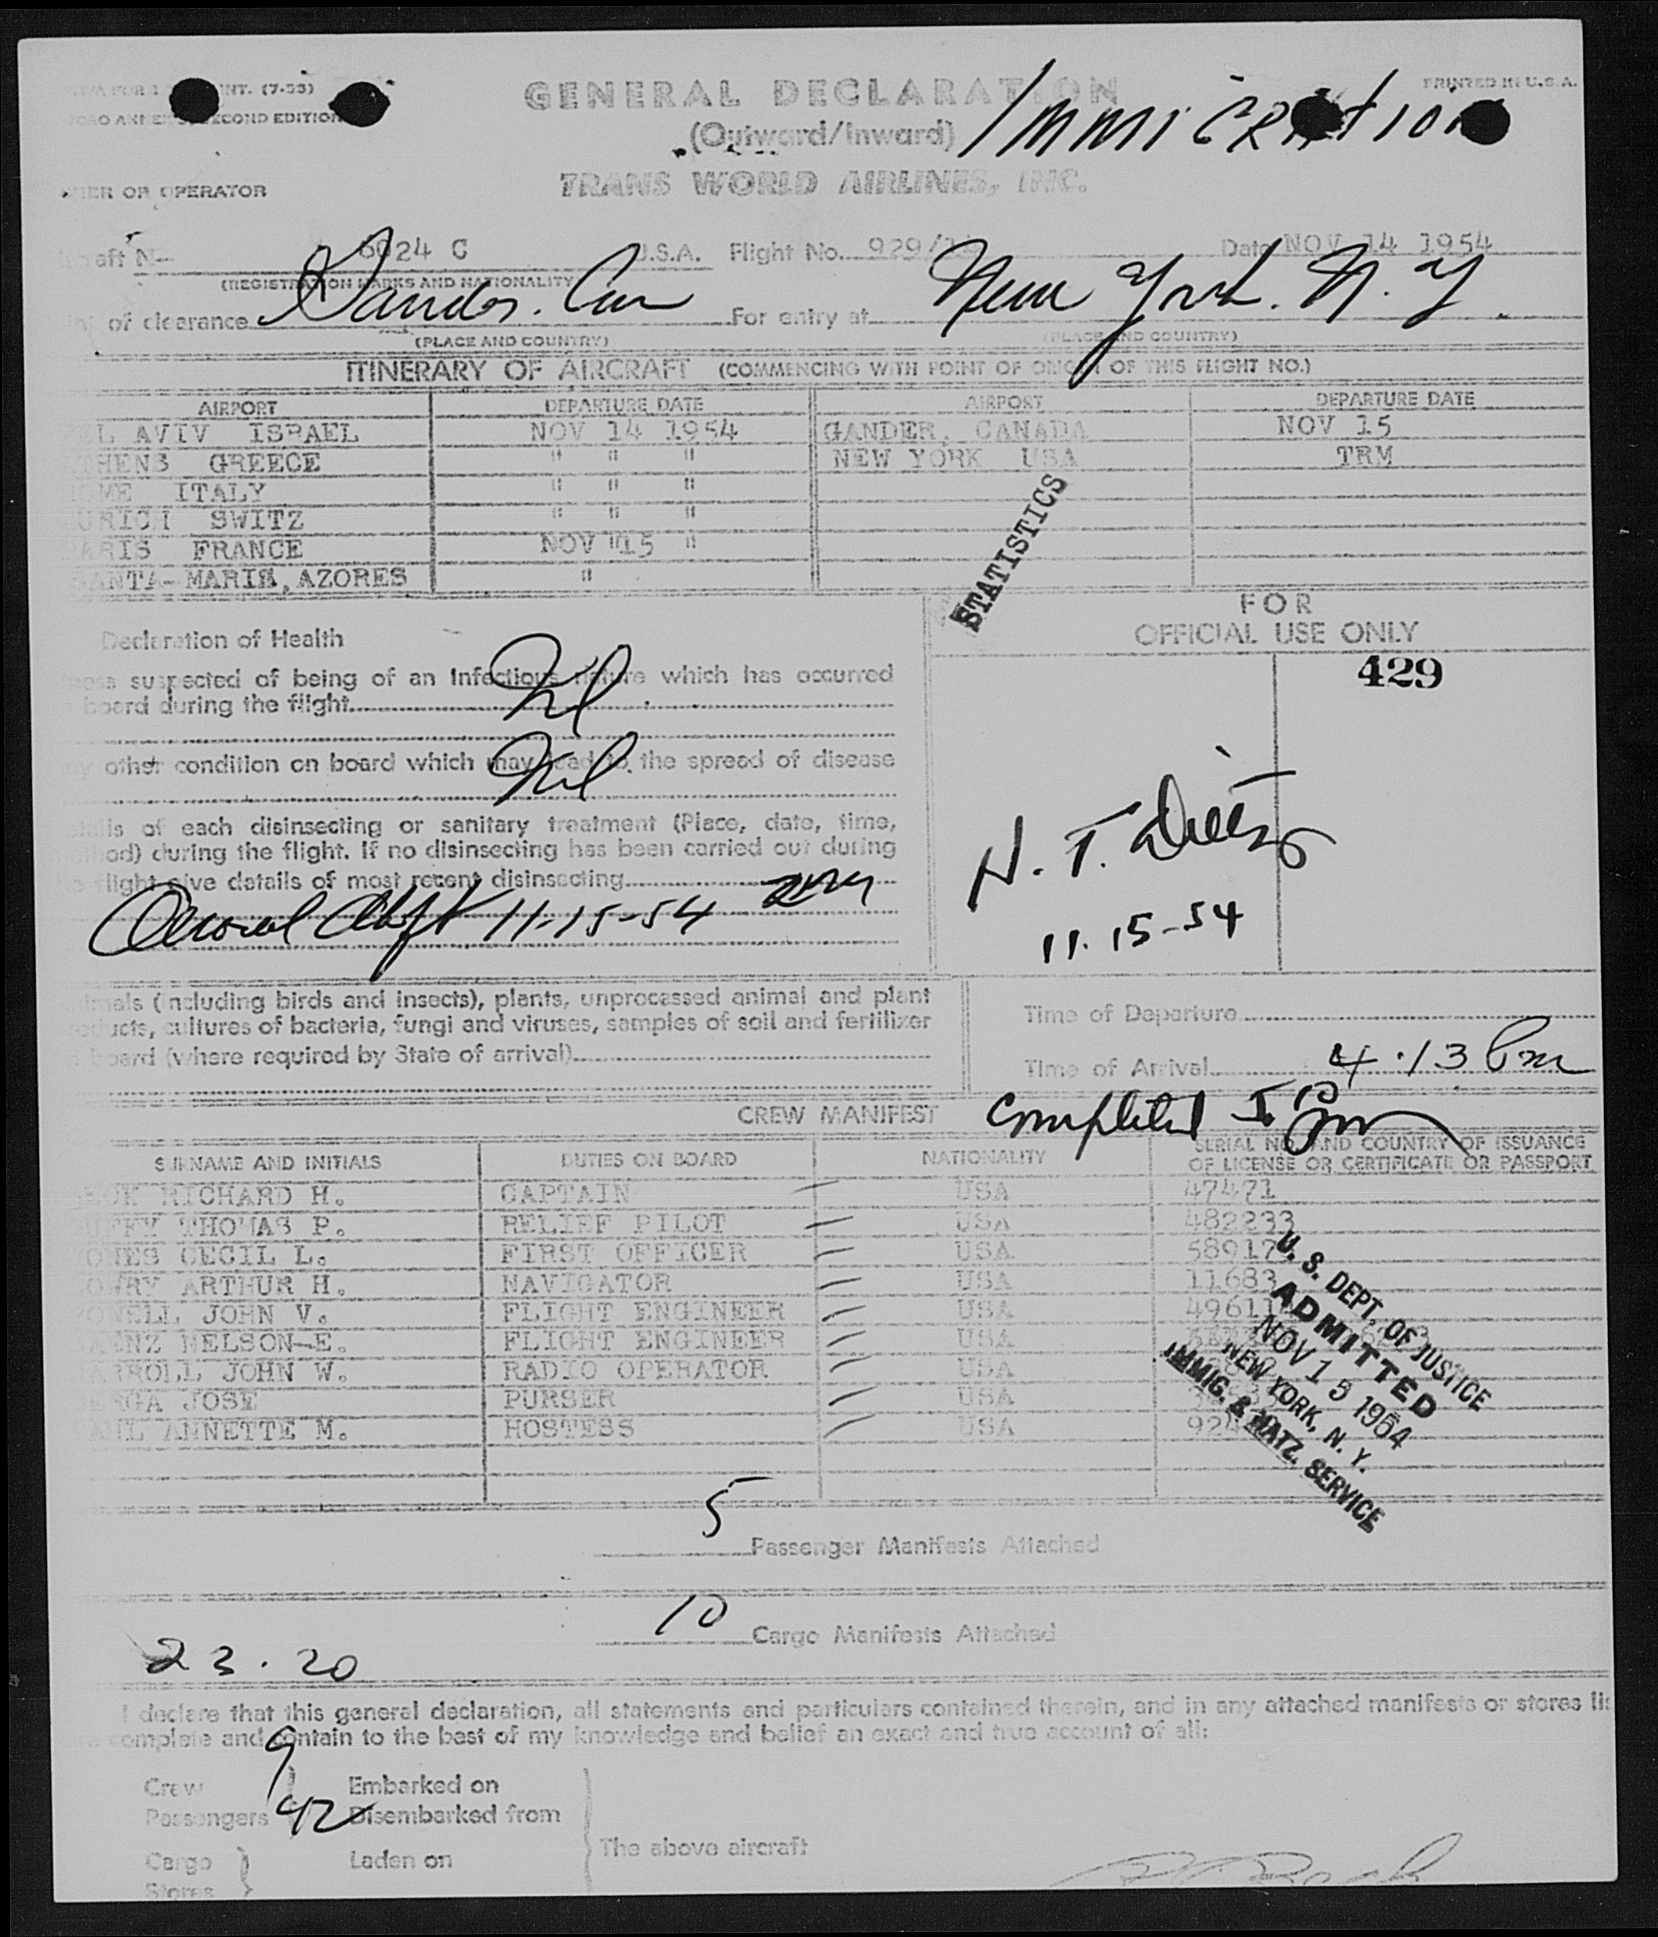 INT. (7-53)
GENERAL DECLARATION
PRINTED IN U.S.A.
SECOND EDITION
(Outward/Inward) Immigration
OR OPERATOR
TRANS WORLD AIRLINES, INC.
N- 6024 C U.S.A. Flight No. 929/ Date NOV 14 1954
(REGISTRATION MARKS AND NATIONALITY)
of clearance Gander. Can For entry at New York. N.Y.
(PLACE AND COUNTRY) (PLACE AND COUNTRY)
ITINERARY OF AIRCRAFT (COMMENCING WITH POINT OF ORIGIN OF THIS FLIGHT NO.)
AIRPORT DEPARTURE DATE AIRPORT DEPARTURE DATE
EL AVIV ISRAEL NOV 14 1954 GANDER, CANADA NOV 15
THENS GREECE " " " NEW YORK USA TRM
OME ITALY " " "
URICH SWITZ " " "
PARIS FRANCE NOV "15 "
SANTA-MARIA, AZORES "
STATISTICS
FOR
OFFICIAL USE ONLY
429
Declaration of Health
suspected of being of an infectious nature which has occurred
board during the flight Nil
other condition on board which may lead to the spread of disease
Nil
of each disinsecting or sanitary treatment (Place, date, time,
during the flight. If no disinsecting has been carried out during
flight give details of most recent disinsecting
Aerosol 11-15-54
11-15-54
(including birds and insects), plants, unprocessed animal and plant
cultures of bacteria, fungi and viruses, samples of soil and fertilizer
board (where required by State of arrival)
Time of Departure
Time of Arrival 4:13 Pm
CREW MANIFEST Completed
SURNAME AND INITIALS DUTIES ON BOARD NATIONALITY SERIAL NO. AND COUNTRY OF ISSUANCE
OF LICENSE OR CERTIFICATE OR PASSPORT
RICHARD H. CAPTAIN USA 47471
THOMAS P. RELIEF PILOT USA 482233
ONES CECIL L. FIRST OFFICER USA 58917
OWRY ARTHUR H. NAVIGATOR USA 11683
JOHN V. FLIGHT ENGINEER USA 49611
NELSON E. FLIGHT ENGINEER USA
ARROLL JOHN W. RADIO OPERATOR USA
JOSE PURSER USA
ANNETTE M. HOSTESS USA 924
U. S. DEPT. OF JUSTICE
ADMITTED
NOV 15 1954
NEW YORK, N. Y.
IMMIG. & NATZ. SERVICE
5 Passenger Manifests Attached
10 Cargo Manifests Attached
23.20
I declare that this general declaration, all statements and particulars contained therein, and in any attached manifests or stores lis
complete and contain to the best of my knowledge and belief an exact and true account of all:
Crew 9 Embarked on
Passengers 42 Disembarked from
The above aircraft
Cargo Laden on
Stores